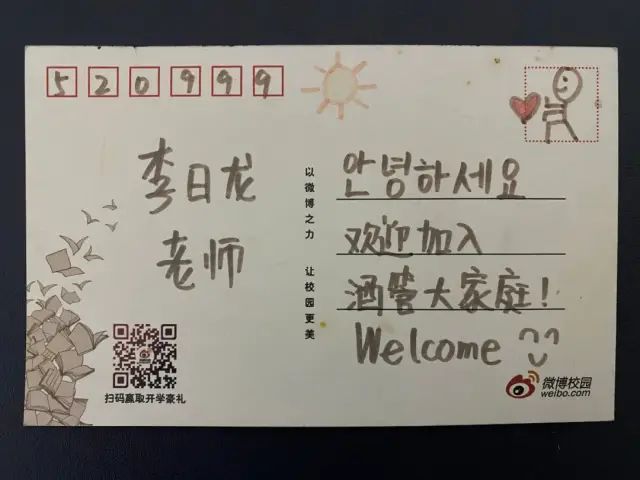 520999
李日龙
老师
以微博之力 让校园更美
안녕하세요
欢迎加入
酒管大家庭!
Welcome
扫码赢取开学豪礼
微博校园
weibo.com